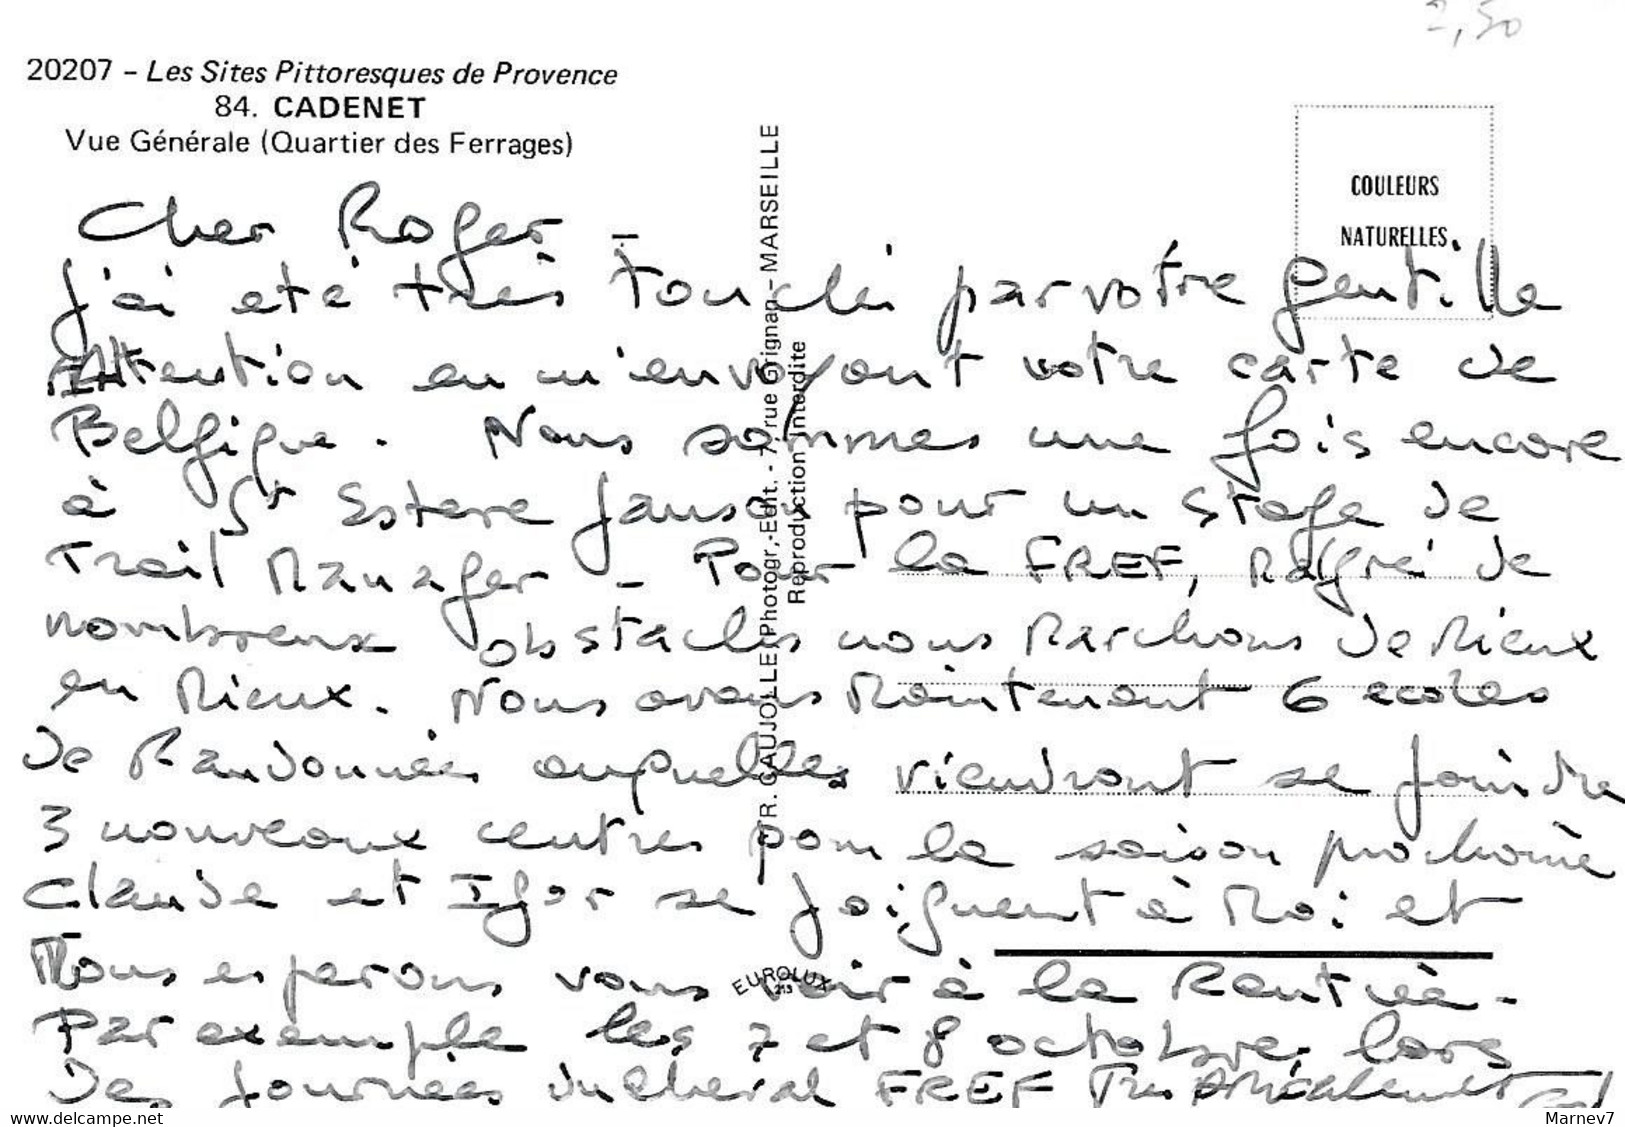 2,50
20207 – Les Sites Pittoresques de Provence
84. CADENET
Vue Générale (Quartier des Ferrages)
COULEURS
NATURELLES
TR. GAUJOLLE, Photogr.-Edit. - 7, rue Grignan - MARSEILLE
Reproduction Interdite
Cher Roger –
J'ai eté très Touché par votre gentille
Attention en m'envoyant votre carte de
Belgique. Nous sommes une fois encore
à St Esteve Janson pour un stage de
Trail Manager – Pour la FREF, Malgré de
nombreux obstacles nous Marchons de Mieux
en Mieux. Nous avons Maintenant 6 ecoles
de Randonnées auxquelles viendront se joindre
3 nouveaux centres pour la saison prochaine
Claude et Igor se joignent à Moi et
Nous esperons vous voir à la Rentrée.
Par exemple les 7 et 8 octobre lors
des journées du cheval FREF Très Amicalement
EUROLUX
213
www.delcampe.net
Marnev7